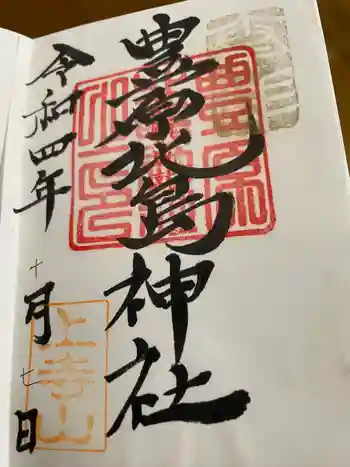 豊原北島神社
令和四年
十月七日
上寺山